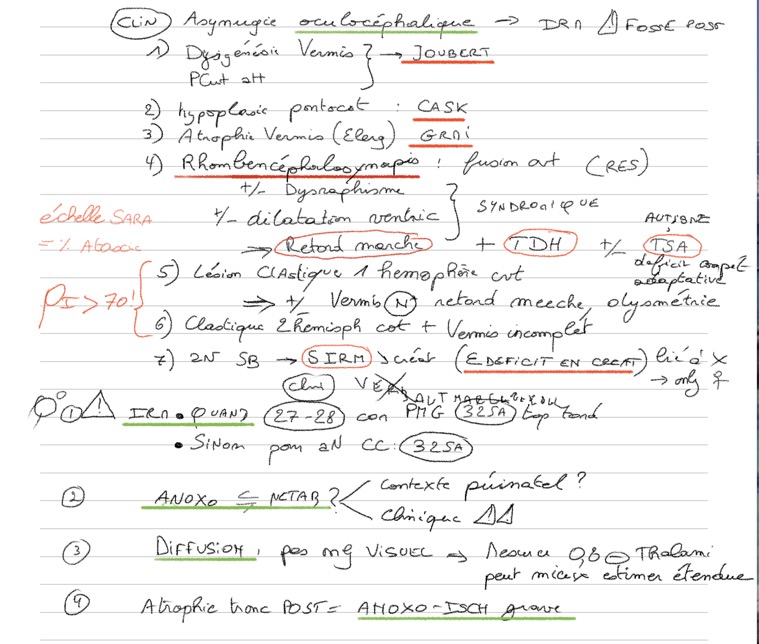 CLIN Asynergie oculocéphalique → IRM ⚠ FOSSE POST
1) Dysgénésie Vermis } → JOUBERT
PCut att
2) hypoplasie pontocot : CASK
3) Atrophie Vermis (Elarg) GRMI
4) Rhombencéphalosynapsis : fusion cvt (RES)
+/- Dysraphisme
+/- dilatation ventric } SYNDROMIQUE
échelle SARA
= % Ataxie
⇒ Retard marche + TDH +/- TSA
AUTISME
deficit compet
adaptative
5) Lésion Clastique 1 hemisphère cvt
PI > 70 !
⇒ +/- Vermis N retard meeche, dysmétrie
6) Clastique 2 hémisph cot + Vermis incomplet
7) 2N SB → SIRM > créat (E DEFICIT EN CREAT) lié à X
→ only ♀
⚠ IRM • QUAND 27-28 can PMG 32SA trop tard
• SiNom pour aN CC: 32SA
② ANOXO ⇆ METAB ? Contexte périnatal ?
Clinique ⚠⚠
③ DIFFUSION, pas mg VISUEL → Mesurer 0,8 ⊖ THalami
peut mieux estimer étendue
④ Atrophie tronc POST = ANOXO-ISCH grave